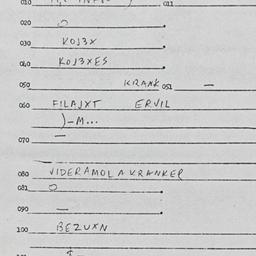 010 011
020 O
030 KOJ3X
040 KOJ3XES
050 KRANK 051 —
060 FILAJXT ERVIL
)-M...
070 —
080 VIDERAMOLAKRANKER
081 O
090 —
100 BEZUXN